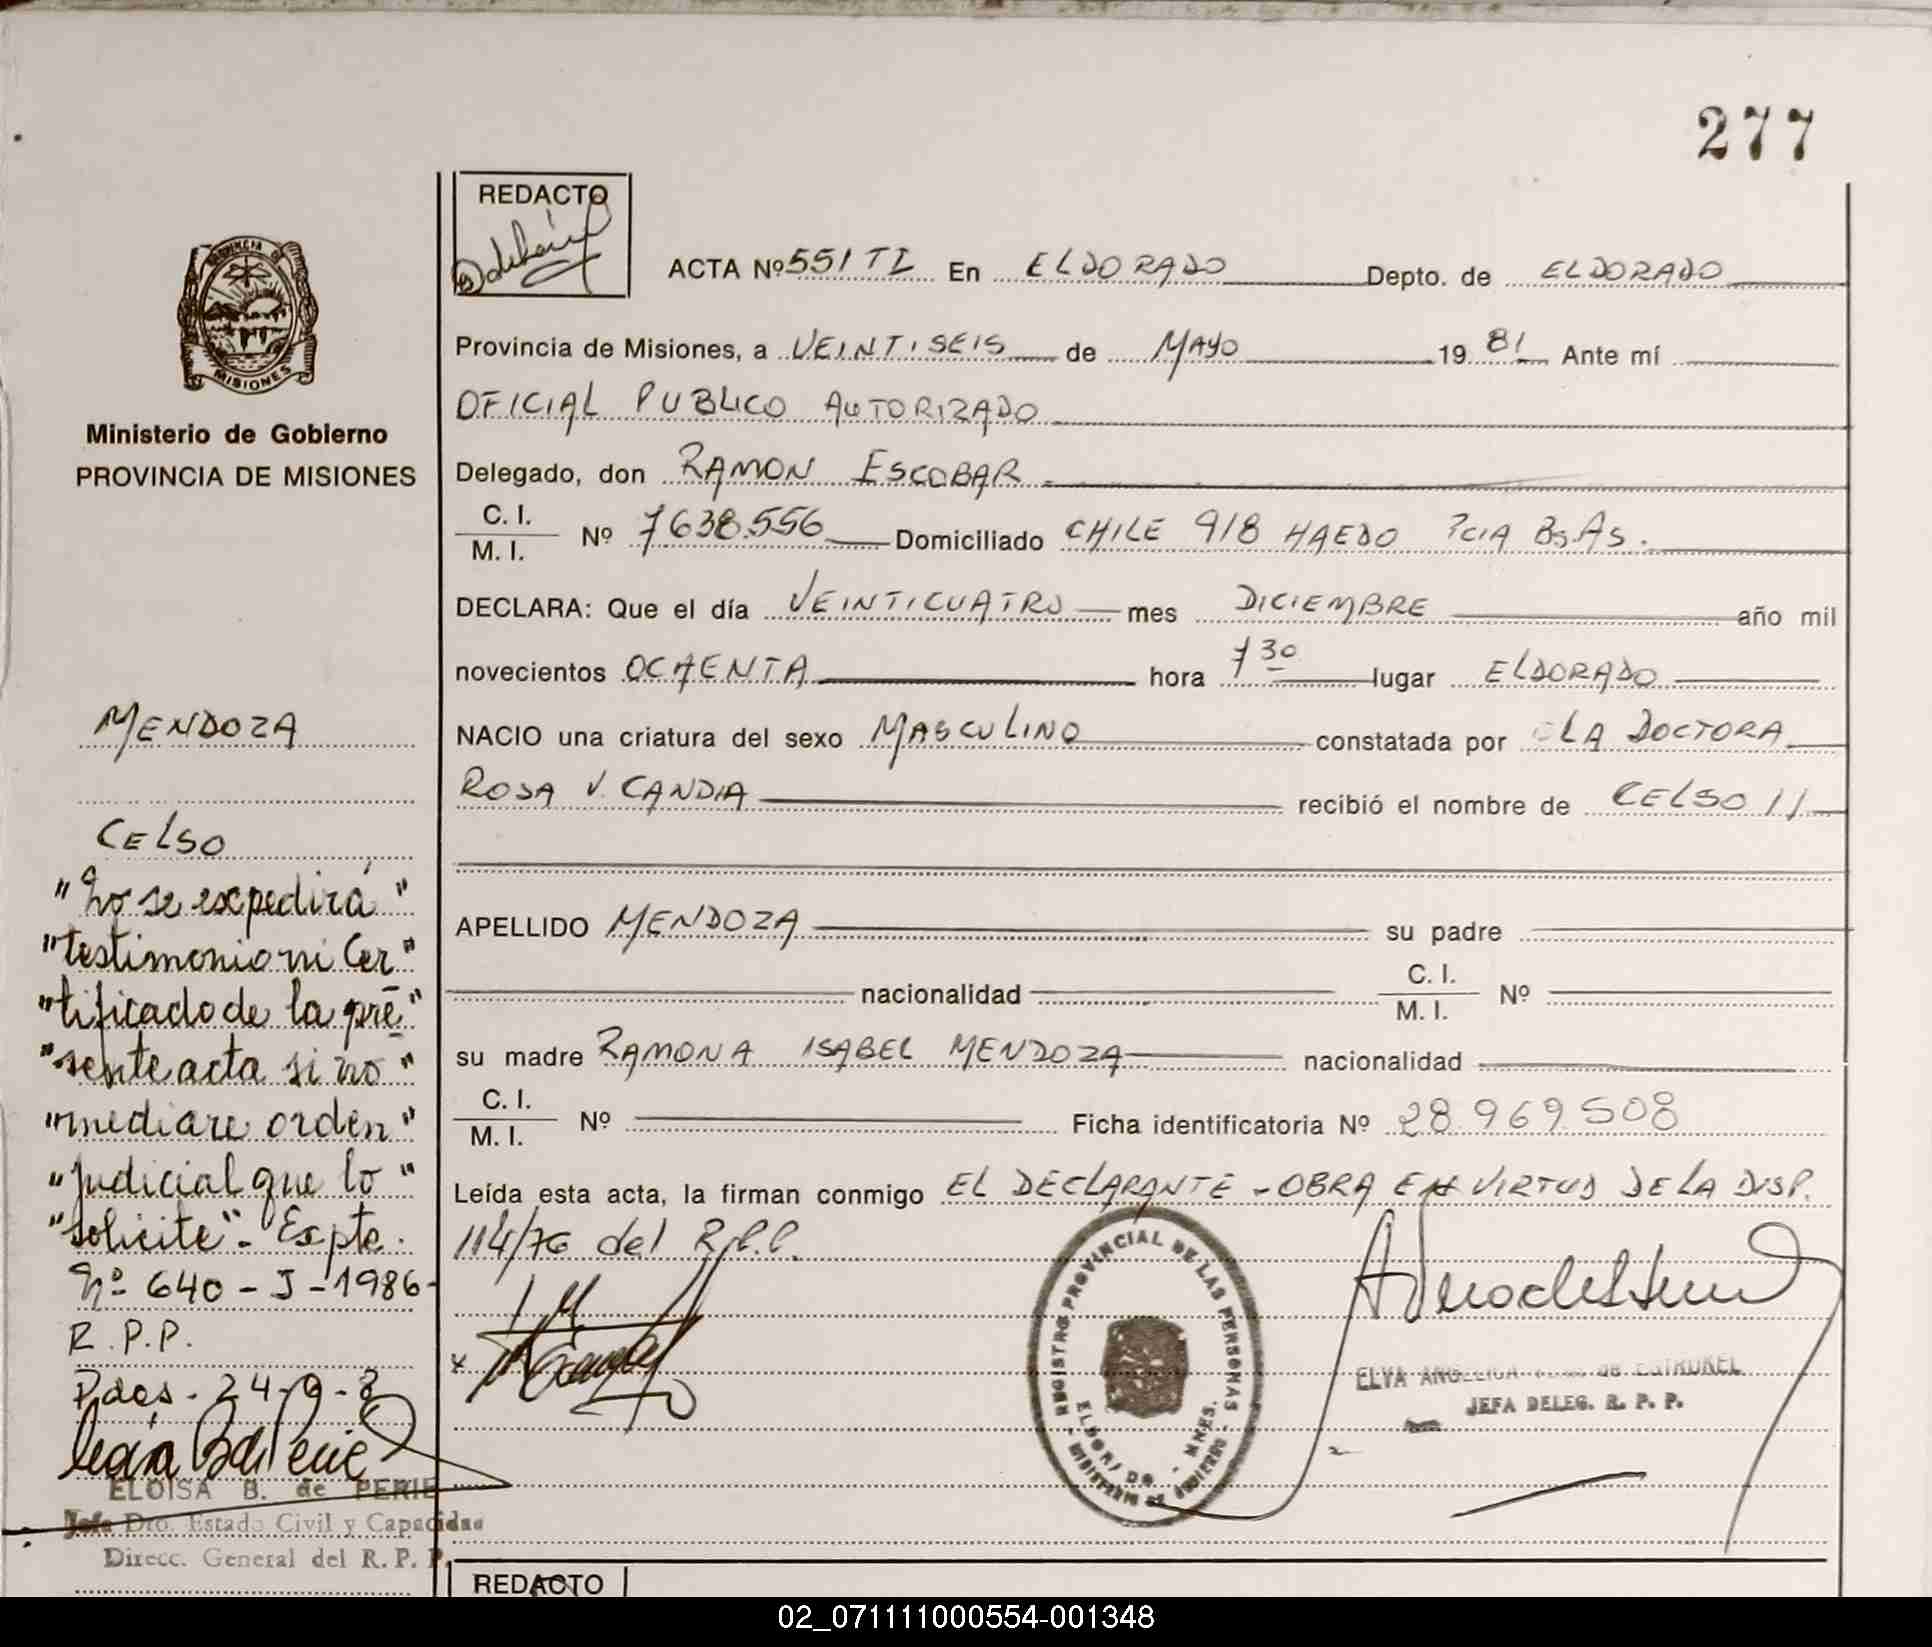 277
REDACTO
ACTA Nº 551 TI En ELDORADO Depto. de ELDORADO
Provincia de Misiones, a VEINTISEIS de MAYO 1981 Ante mí
OFICIAL PUBLICO AUTORIZADO
Delegado, don RAMON ESCOBAR
C. I.
M. I. Nº 7638.556 Domiciliado CHILE 918 HAEDO PCIA Bs.As.
DECLARA: Que el día VEINTICUATRO mes DICIEMBRE año mil
novecientos OCHENTA hora 7 30 lugar ELDORADO
NACIO una criatura del sexo MASCULINO constatada por LA DOCTORA
ROSA V. CANDIA recibió el nombre de CELSO //
APELLIDO MENDOZA su padre
nacionalidad C. I.
M. I. Nº
su madre RAMONA ISABEL MENDOZA nacionalidad
C. I.
M. I. Nº Ficha identificatoria Nº 28.969.508
Leída esta acta, la firman conmigo EL DECLARANTE - OBRA EN VIRTUD DE LA DISP.
114/76 del R.P.P.
REGISTRO PROVINCIAL DE LAS PERSONAS
ELDORADO - MNES.
MINISTERIO DE GOBIERNO
ELVA ANGELICA DE
JEFA DELEG. R. P. P.
PROVINCIA DE
MISIONES
Ministerio de Gobierno
PROVINCIA DE MISIONES
MENDOZA
CELSO
"No se expedirá"
"testimonio ni Cer"
"tificado de la pre"
"sente acta si no"
"mediare orden"
"judicial que lo"
"solicite". Expte.
Nº 640 - J - 1986 -
R.P.P.
Pdas. 24-9-8
ELOISA B. de PERIE
Jefa Dto. Estado Civil y Capacidad
Direcc. General del R. P. P.
REDACTO
02_071111000554-001348